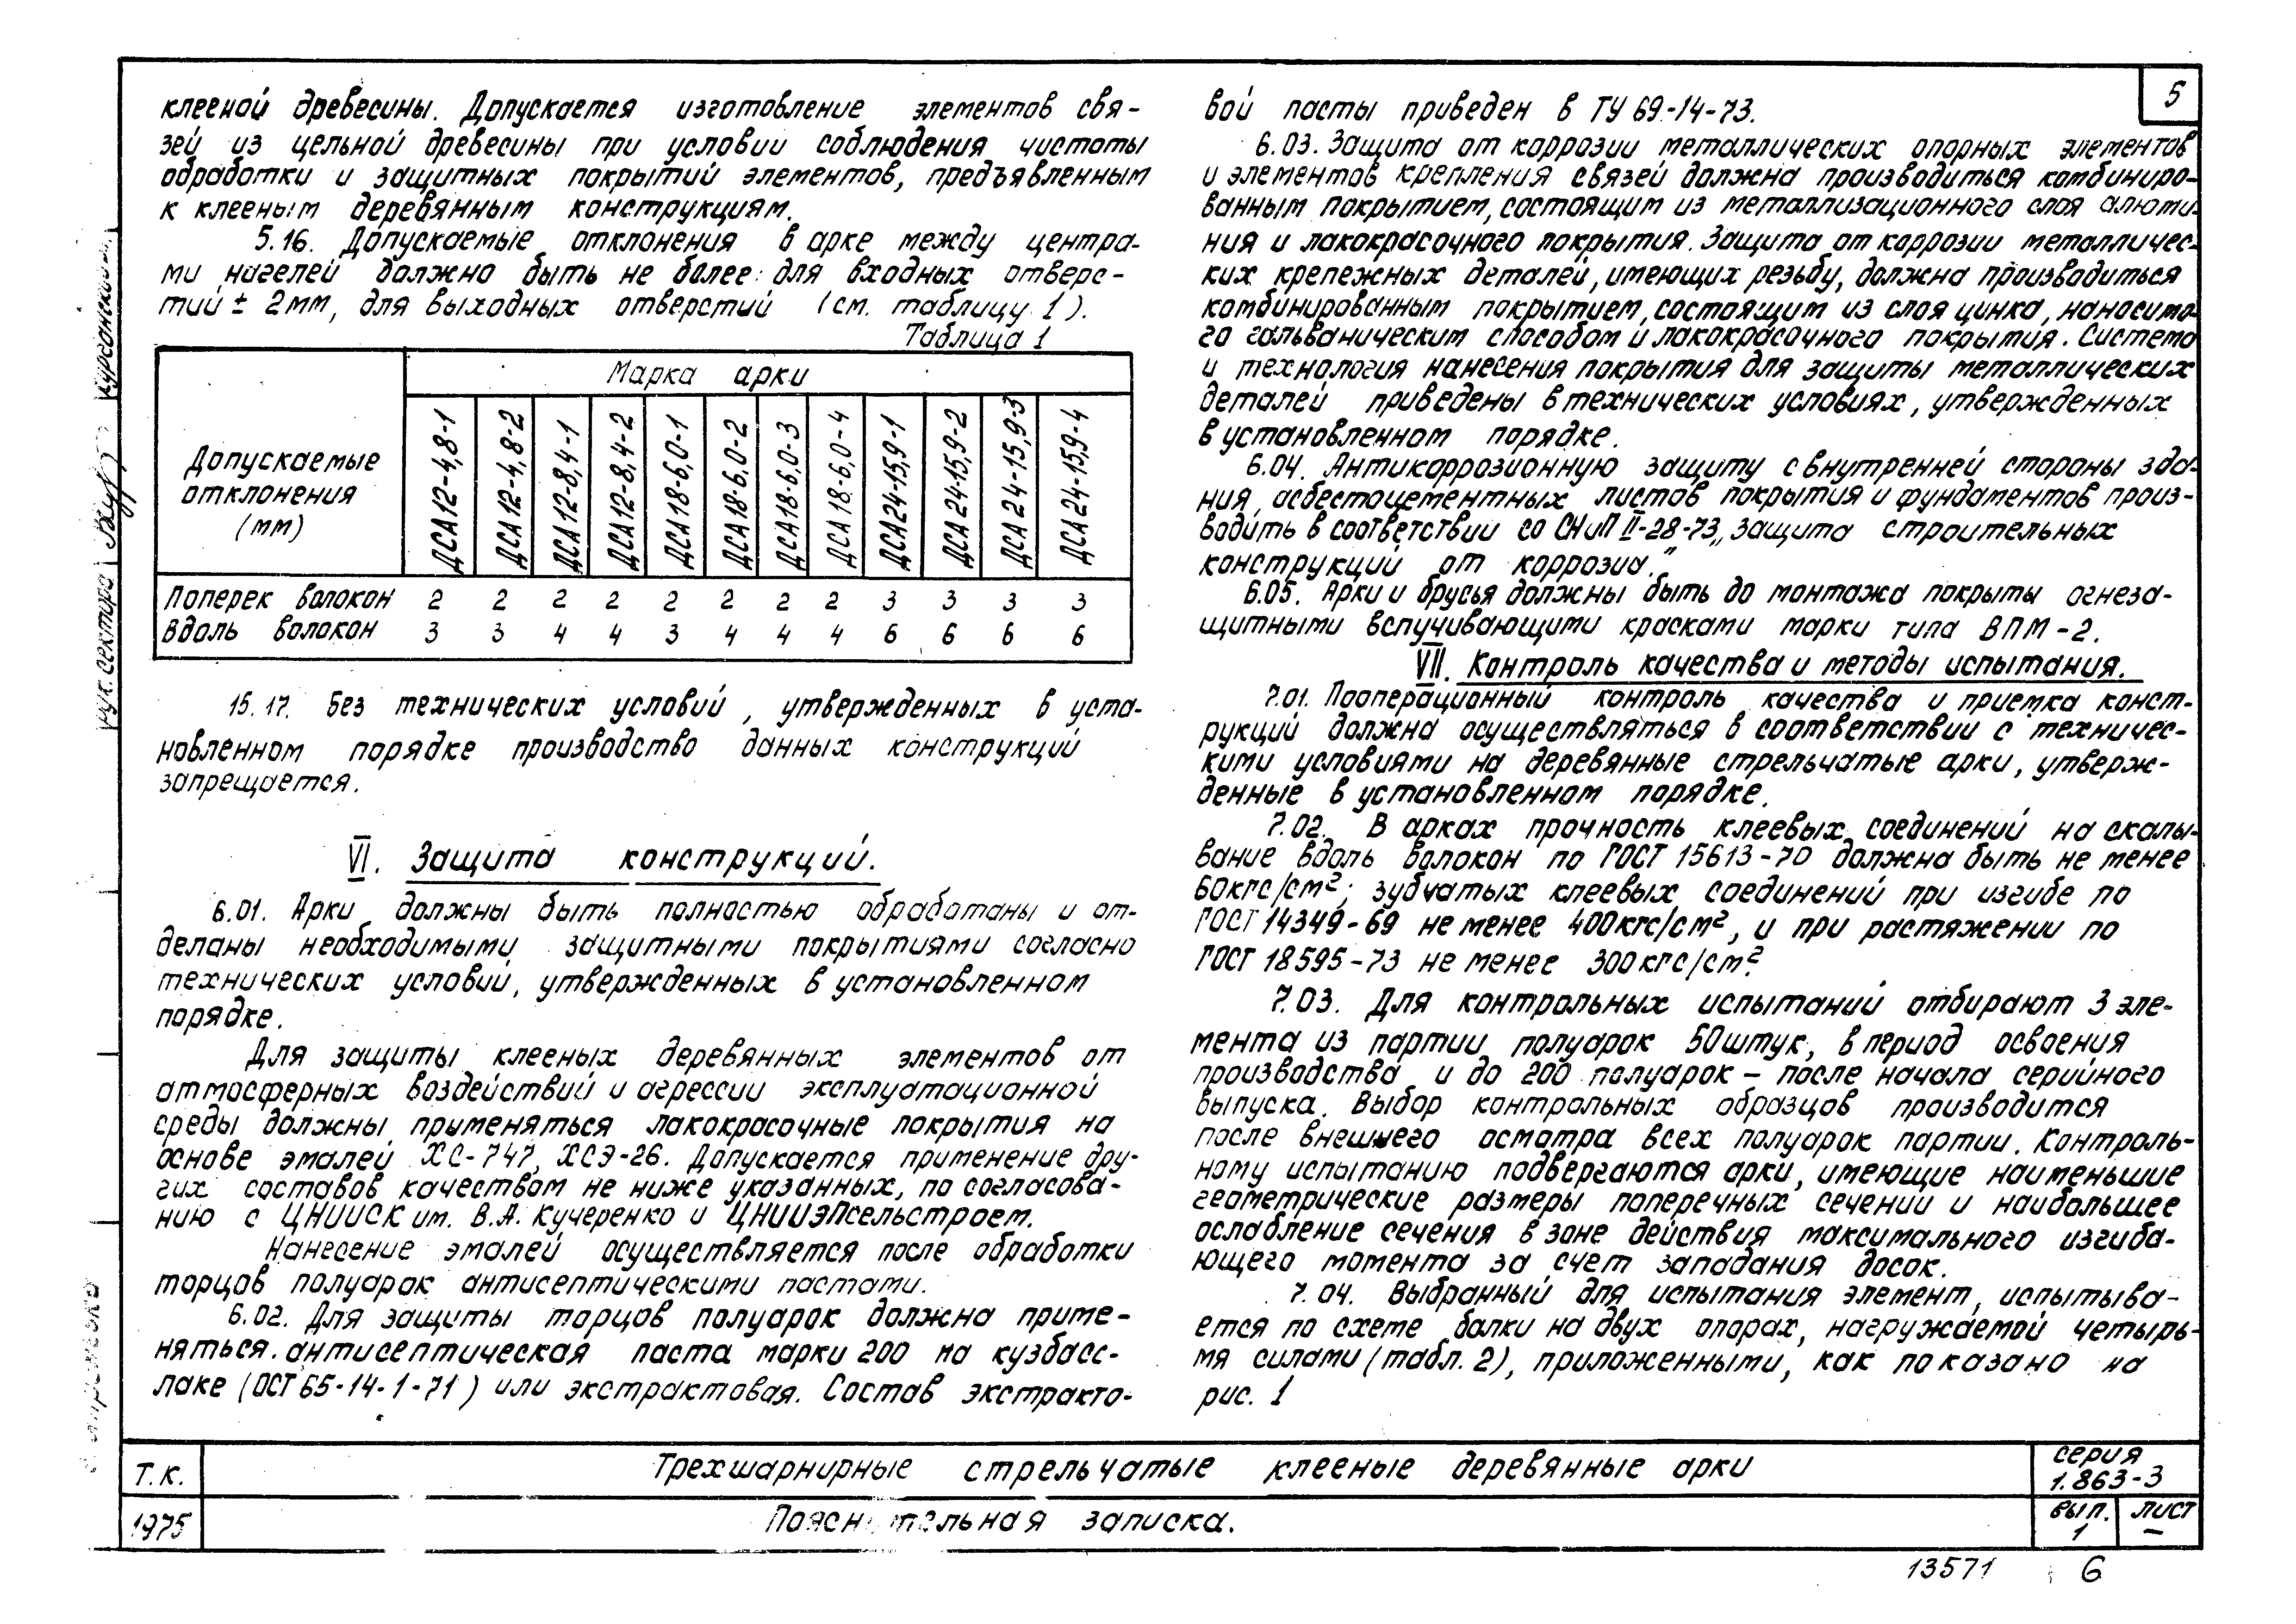 5
клееной древесины. Допускается изготовление элементов свя-
зей из цельной древесины при условии соблюдения чистоты
обработки и защитных покрытий элементов, предъявленным
к клееным деревянным конструкциям.
5.16. Допускаемые отклонения в арке между центра-
ми нагелей должно быть не более: для входных отверс-
тий ± 2мм, для выходных отверстий (см. таблицу 1).
Таблица 1
Допускаемые отклонения (мм)
Марка арки
ДСА12-4,8-1 ДСА12-4,8-2 ДСА12-8,4-1 ДСА12-8,4-2 ДСА18-6,0-1 ДСА18-6.0-2 ДСА18-6.0-3 ДСА18-6,0-4 ДСА24-15,9-1 ДСА24-15,9-2 ДСА24-15,9-3 ДСА24-15,9-4
Поперек волокон 2 2 2 2 2 2 2 2 3 3 3 3
Вдоль волокон 3 3 4 4 3 4 4 4 6 6 6 6
15.17. Без технических условий, утвержденных в уста-
новленном порядке производство данных конструкций
запрещается.
VI. Защита конструкций.
6.01. Арки должны быть полностью обработаны и от-
деланы необходимыми защитными покрытиями согласно
технических условий, утвержденных в установленном
порядке.
Для защиты клееных деревянных элементов от
атмосферных воздействий и агрессии эксплуатационной
среды должны применяться лакокрасочные покрытия на
основе эмалей ХС-747, ХСЭ-26. Допускается применение дру-
гих составов качеством не ниже указанных, по согласова-
нию с ЦНИИСК им. В.А. Кучеренко и ЦНИИЭПсельстроем.
Нанесение эмалей осуществляется после обработки
торцов полуарок антисептическими пастами.
6.02. Для защиты торцов полуарок должна приме-
няться антисептическая паста марки 200 на кузбасс-
лаке (ОСТ 65-14-1-71) или экстрактовая. Состав экстракто-
вой пасты приведен в ТУ 69-14-73.
6.03. Защита от коррозии металлических опорных элементов
и элементов крепления связей должна производиться комбиниро-
ванным покрытием, состоящим из металлизационного слоя алюми-
ния и лакокрасочного покрытия. Защита от коррозии металличес-
ких крепежных деталей, имеющих резьбу, должна производиться
комбинированным покрытием, состоящим из слоя цинка, наносимо-
го гальваническим способом и лакокрасочного покрытия. Система
и технология нанесения покрытия для защиты металлических
деталей приведены в технических условиях, утвержденных
в установленном порядке.
6.04. Антикоррозионную защиту с внутренней стороны зда-
ния, асбестоцементных листов покрытия и фундаментов произ-
водить в соответствии со СНиП II-28-73 „Защита строительных
конструкций от коррозии."
6.05. Арки и брусья должны быть до монтажа покрыты огнеза-
щитными вспучивающими красками марки типа ВПМ-2.
VII. Контроль качества и методы испытания.
7.01. Пооперационный контроль качества и приемка конст-
рукций должна осуществляться в соответствии с техничес-
кими условиями на деревянные стрельчатые арки, утверж-
денные в установленном порядке.
7.02. В арках прочность клеевых соединений на скалы-
вание вдоль волокон по ГОСТ 15613-70 должна быть не менее
60кгс/см²; зубчатых клеевых соединений при изгибе по
ГОСТ 14349-69 не менее 400кгс/см², и при растяжении по
ГОСТ 18595-73 не менее 300кгс/см²
7.03. Для контрольных испытаний отбирают 3 эле-
мента из партии полуарок 50штук, в период освоения
производства и до 200 полуарок – после начала серийного
выпуска. Выбор контрольных образцов производится
после внешнего осмотра всех полуарок партии. Контроль-
ному испытанию подвергаются арки, имеющие наименьшие
геометрические размеры поперечных сечений и наибольшее
ослабление сечения в зоне действия максимального изгиба-
ющего момента за счет западания досок.
7.04. Выбранный для испытания элемент, испытыва-
ется по схеме балки на двух опорах, нагружаемой четырь-
мя силами (табл. 2), приложенными, как показано на
рис. 1
рук. сектора
Т.К.
1975
Трехшарнирные стрельчатые клееные деревянные арки
Пояснительная записка.
серия
1.863-3
вып. лист
1 –
13571 6